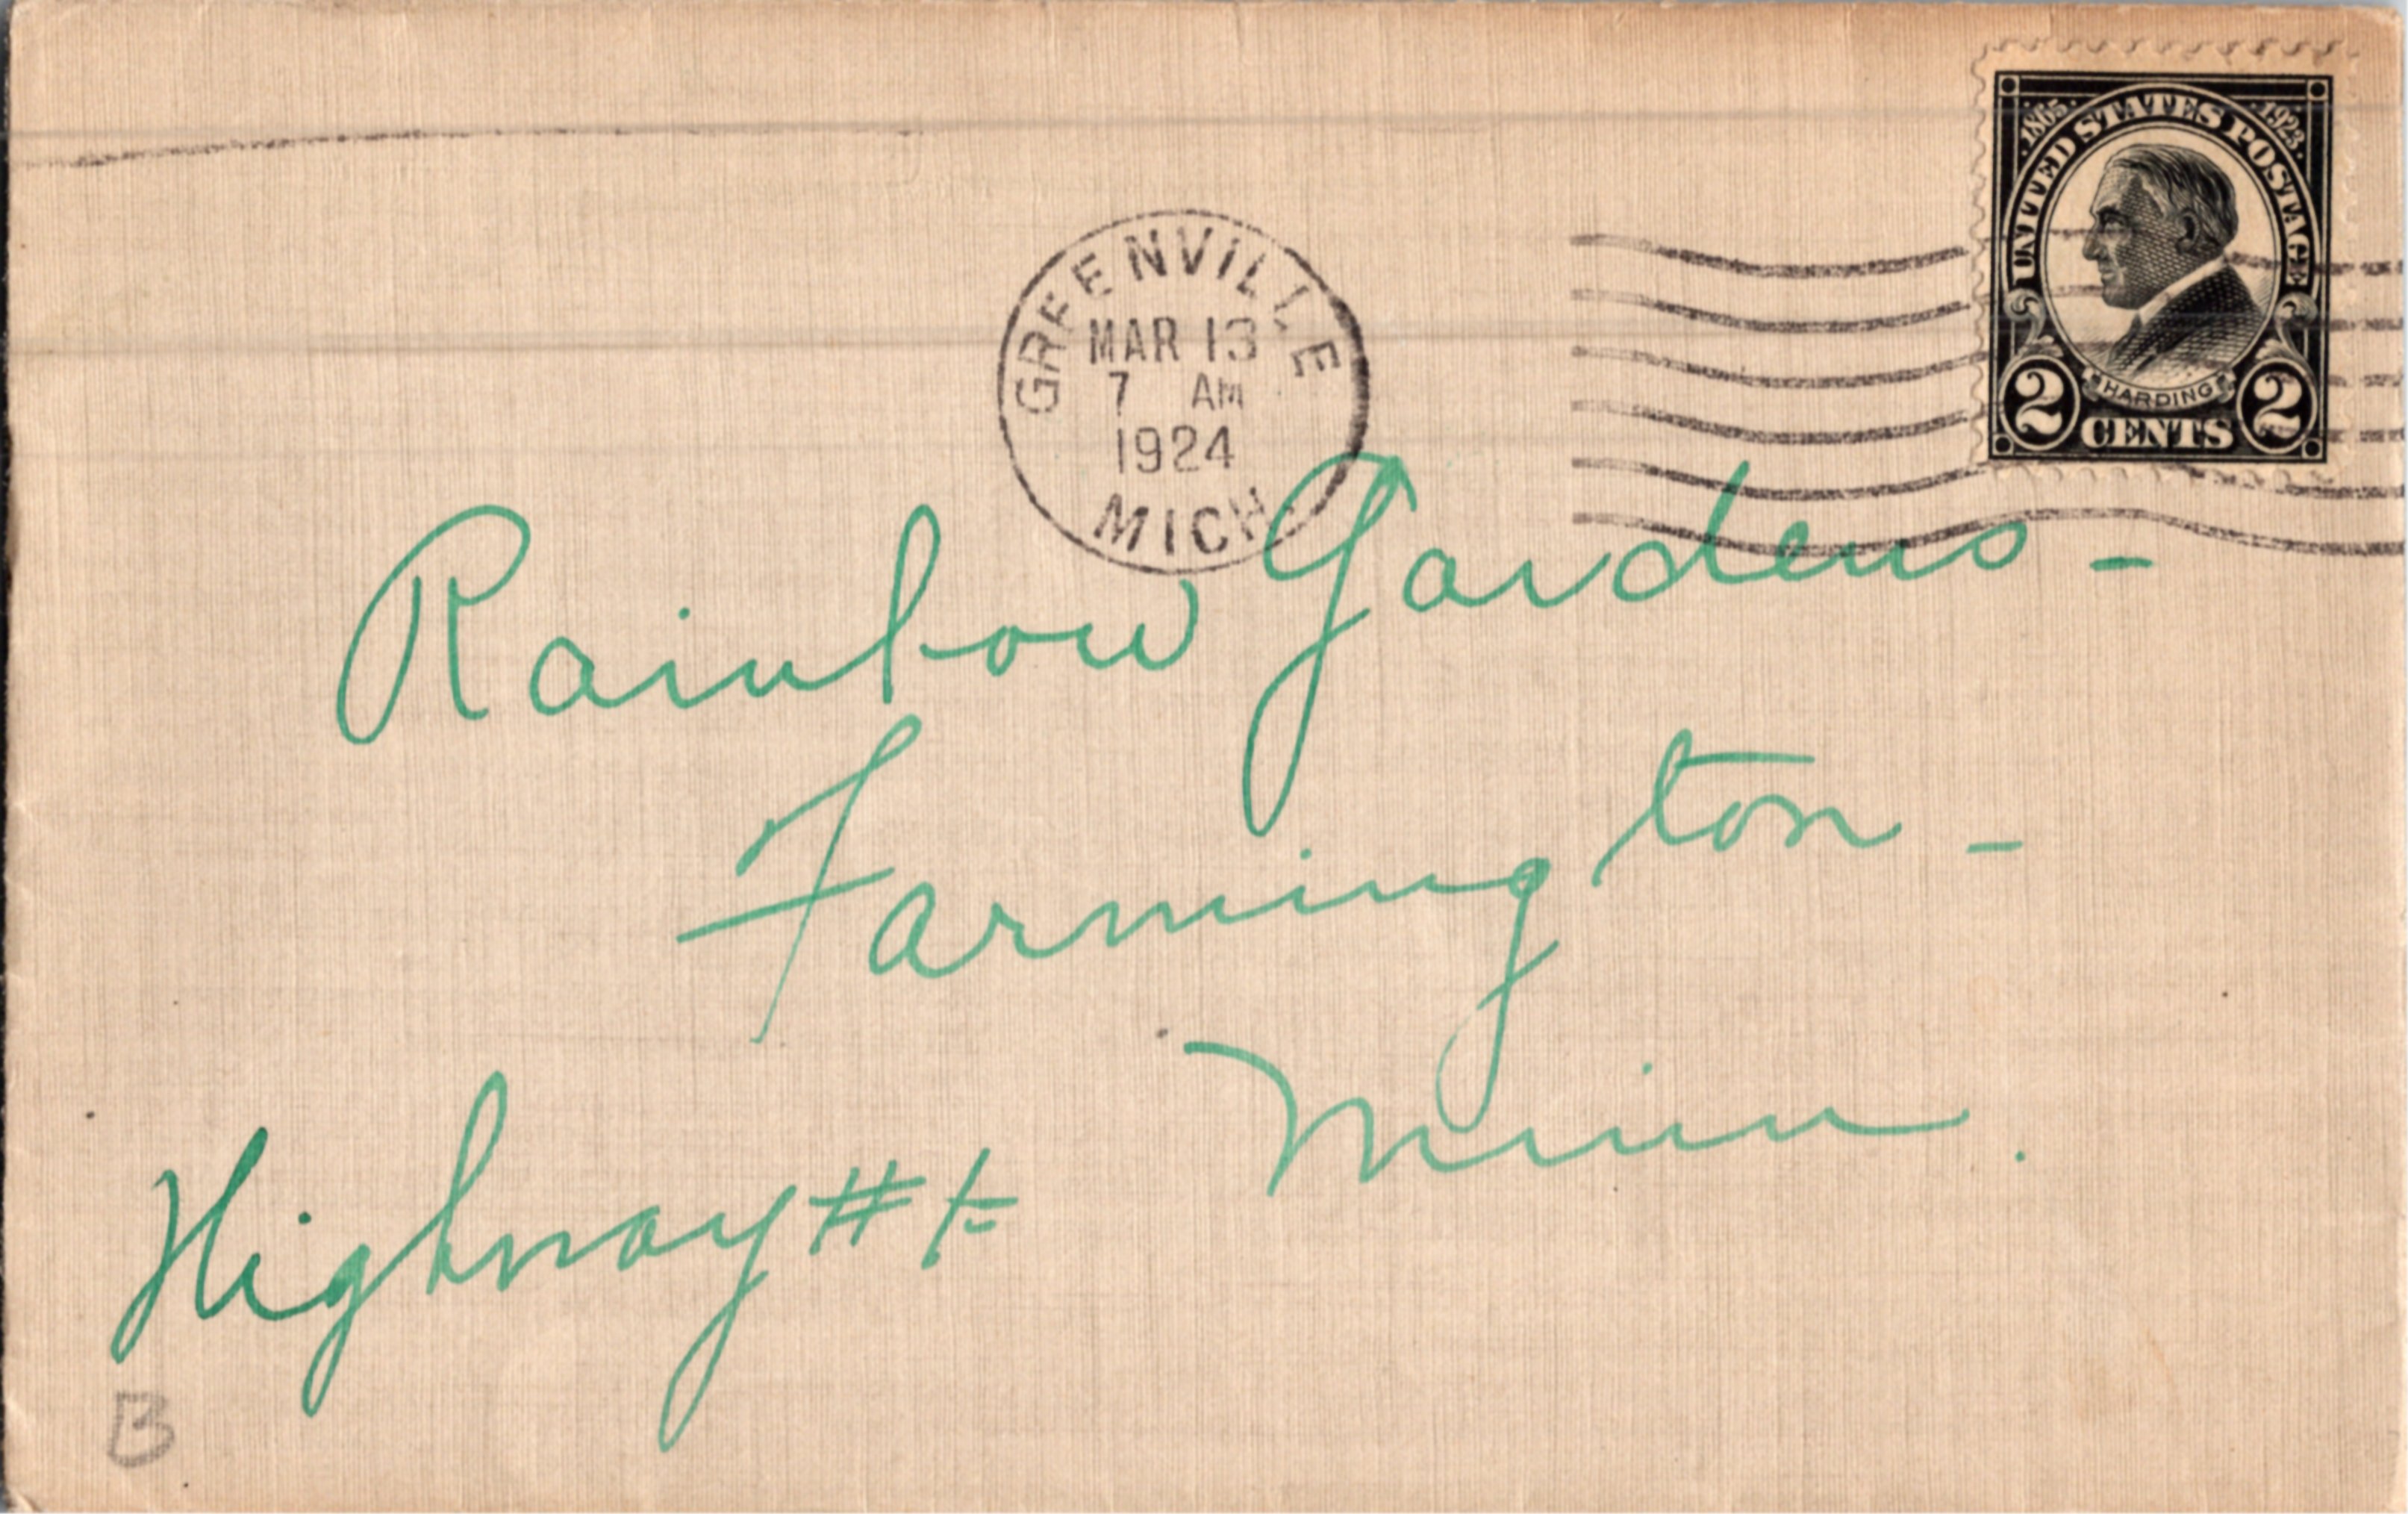 1865 UNITED STATES POSTAGE 1923
HARDING
2 CENTS 2
GREENVILLE
MAR 13
7 AM
1924
MICH.
Rainbow Gardens -
Farmington -
Minn.
Highway #1-
B